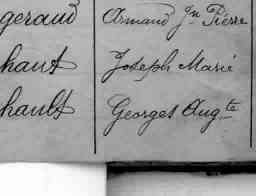 geraud Armand Jn Pierre
haut Joseph Marie
hault Georges Augte